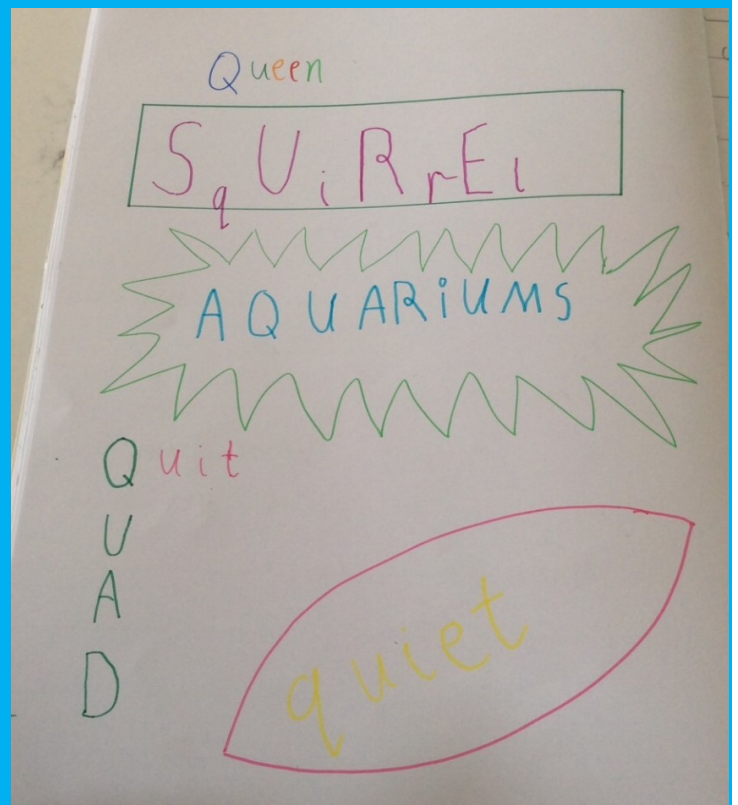 Queen
SqUiRrEl
AQUARiUMS
Quit
U
A
D
quiet